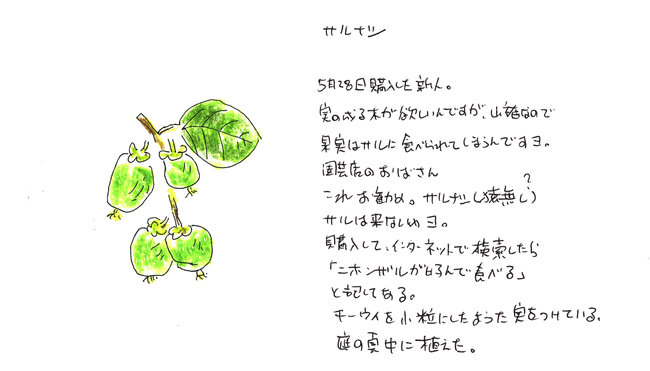 サルナシ
5月28日購入した新人。
実の成る木が欲しいんですが、山雑なので
果実はサルに食べられてしまうんですヨ。
園芸店のおばさん
これお勧め。サルナシ(猿無し?)
サルは来ないわヨ。
購入して、インターネットで検索したら
「ニホンザルが好んで食べる」
と記してある。
キーウイを小粒にしたような実をつけている。
庭の真中に植えた。